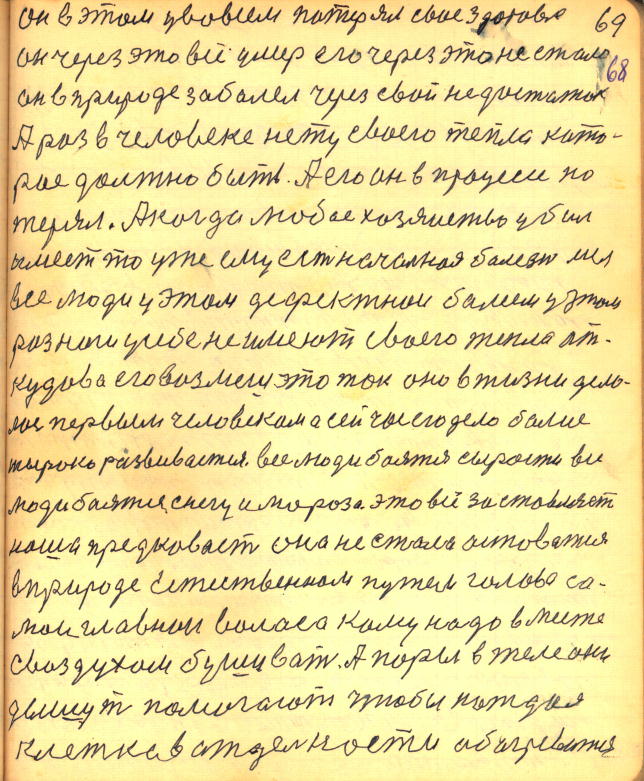 он в этом у вовсем потерял свое здоровье 69
он через это всё умер его через это не стало
68
он в природе заболел через свой недостаток
А раз в человеке нету своего тепла кото-
рое должно быть. А его он в процеси по
терял. А когда любое хозяйство убил
имеет то уже ему ест началная болезн мы
все люди у этом дефектнои балеем у этом
раз ноги у себе не имеют своего тепла от-
кудова его возмеш это ток оно в жизни дела-
лос первым человеком а сейчас его дело более
широко развивается. все люди боятся сырости все
люди боятся, снегу и мороза. это всё заставляет
наша предковаст она не стала астоватся
в природе Естественном путем голова са-
мои главнои воласа кому надо вместе
с воздухом бушиват. А поры в теле они
дышут помогают чтобы каждая
клетка в отделности обогревался